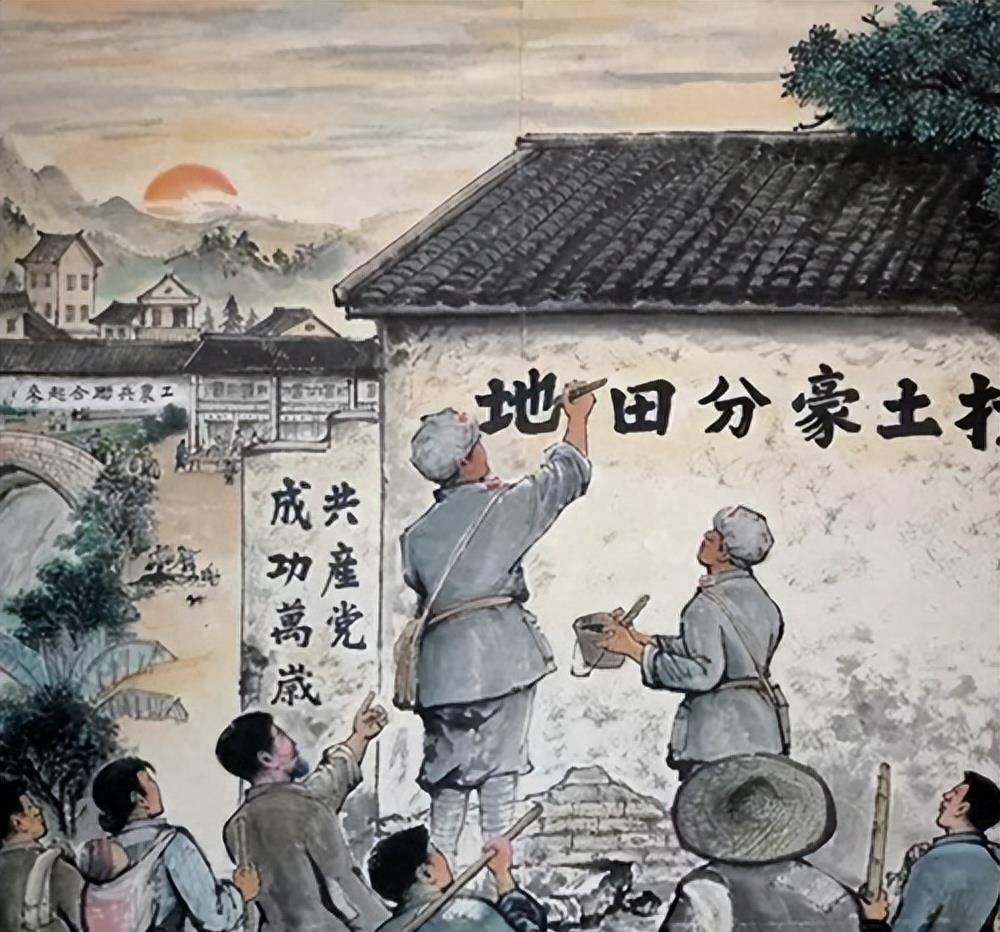 打土豪分田地
共産党
成功萬歲
工農兵聯合起來！